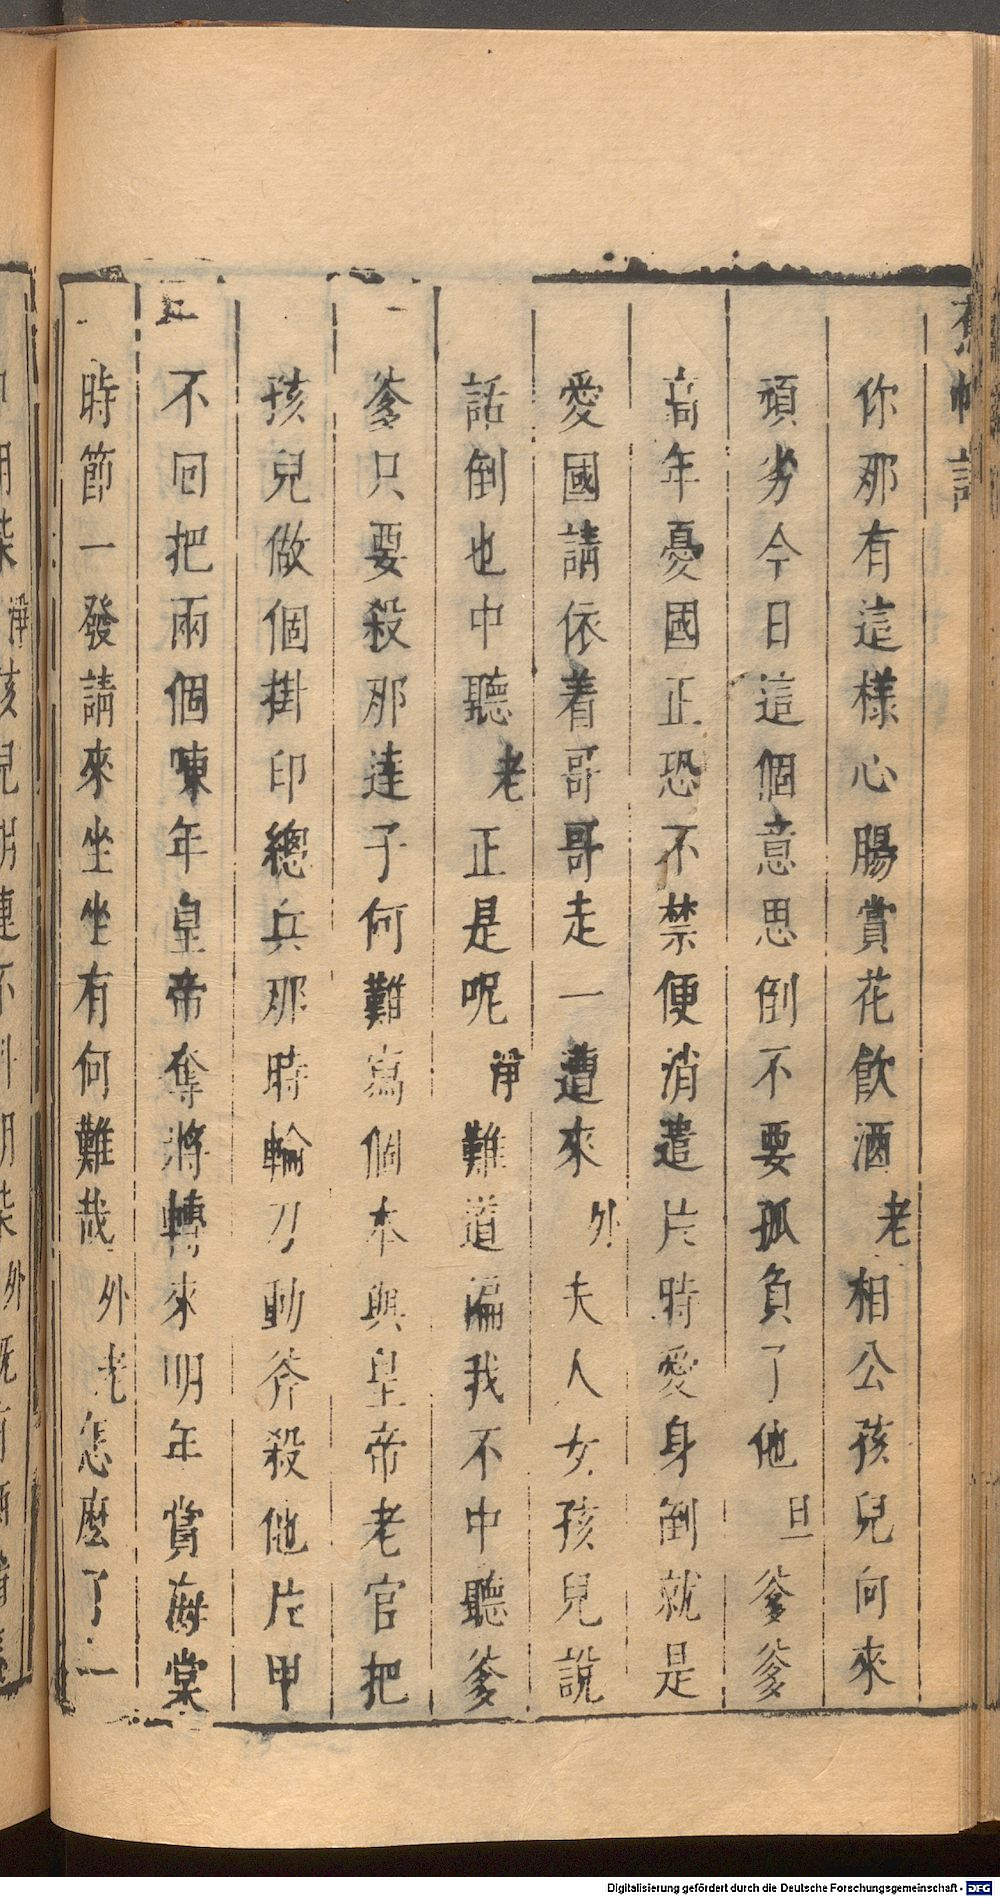 蕉帕記
你那有這樣心腸賞花飲酒老相公孩兒向來
頑劣今日這個意思倒不要孤負了他旦爹爹
高年憂國正恐不禁便消遣片時愛身倒就是
愛國請依着哥哥走一遭來外夫人女孩兒說
話倒也中聽老正是呢淨難道偏我不中聽爹
爹只要殺那達子何難寫個本與皇帝老官把
孩兒做個掛印總兵那時輪刀動斧殺他片甲
不回把兩個嗹年皇帝奪將轉來明年賞海棠
時節一發請來坐坐有何難哉外老怎麽了
Digitalisierung gefördert durch die Deutsche Forschungsgemeinschaft - DFG